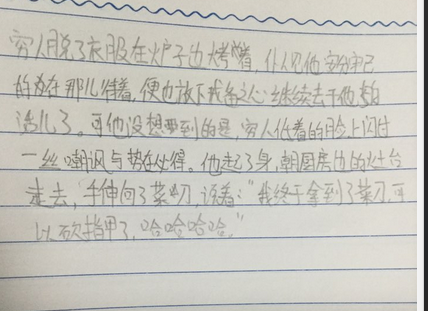 穷人脱了衣服在炉子边大烤着,仆人见他安分守己
的就在那儿待着,便也放下戒备之心继续去干他的
活儿了。可他没想到的是,穷人低着的脸上闪过
一丝嘲讽与势在必得。他起了身,朝厨房边的灶台
走去,手伸向了菜刀,说着:"我终于拿到了菜刀,可
以砍指甲了,哈哈哈哈。"